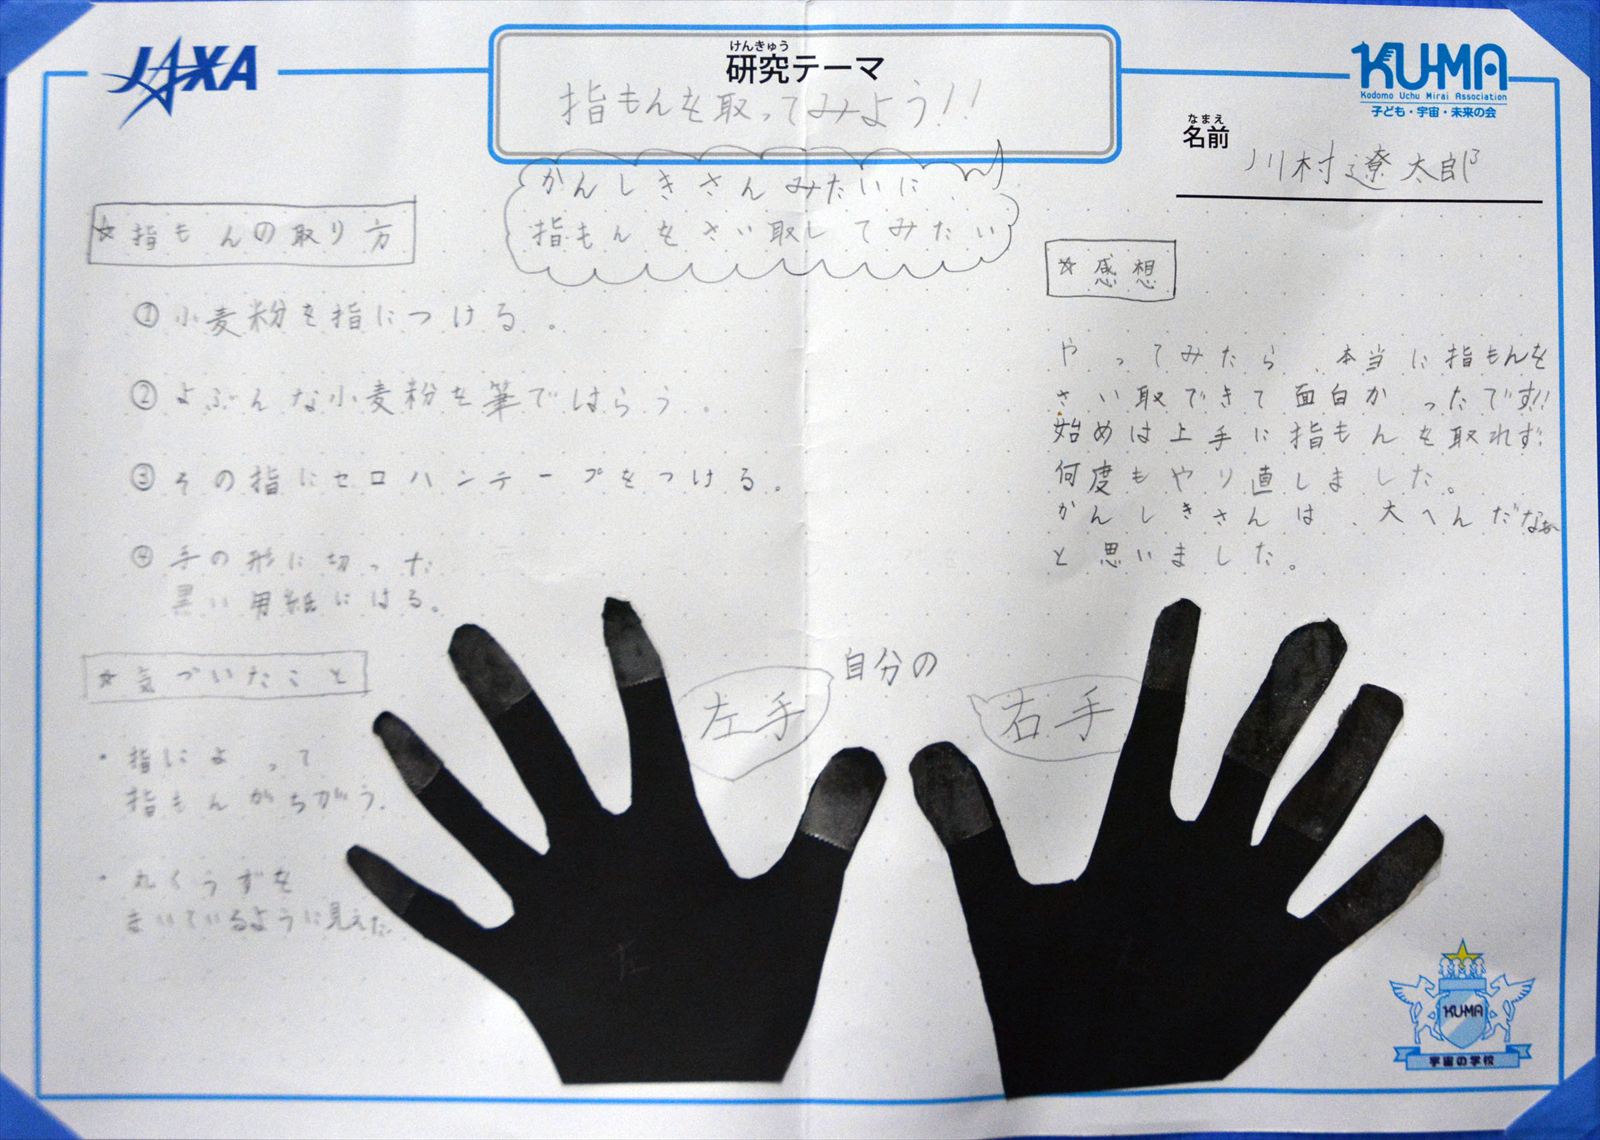 JAXA
けんきゅう
研究テーマ
指もんを取ってみよう!!
KU-MA
Kodomo Uchu Mirai Association
子ども・宇宙・未来の会
なまえ
名前
川村遼太郎
かんしきさんみたいに
指もんをさい取してみたい
☆指もんの取り方
①小麦粉を指につける。
②よぶんな小麦粉を筆ではらう。
③その指にセロハンテープをつける。
④手の形に切った
黒い用紙にはる。
☆気づいたこと
・指によって
指もんがちがう。
・丸くうずを
まいているように見えた。
自分の
左手
右手
左
☆感想
やってみたら、本当に指もんを
さい取できて面白かったです!!
始めは上手に指もんを取れず
何度もやり直しました。
かんしきさんは、大へんだなぁ
と思いました。
KUMA
宇宙の学校